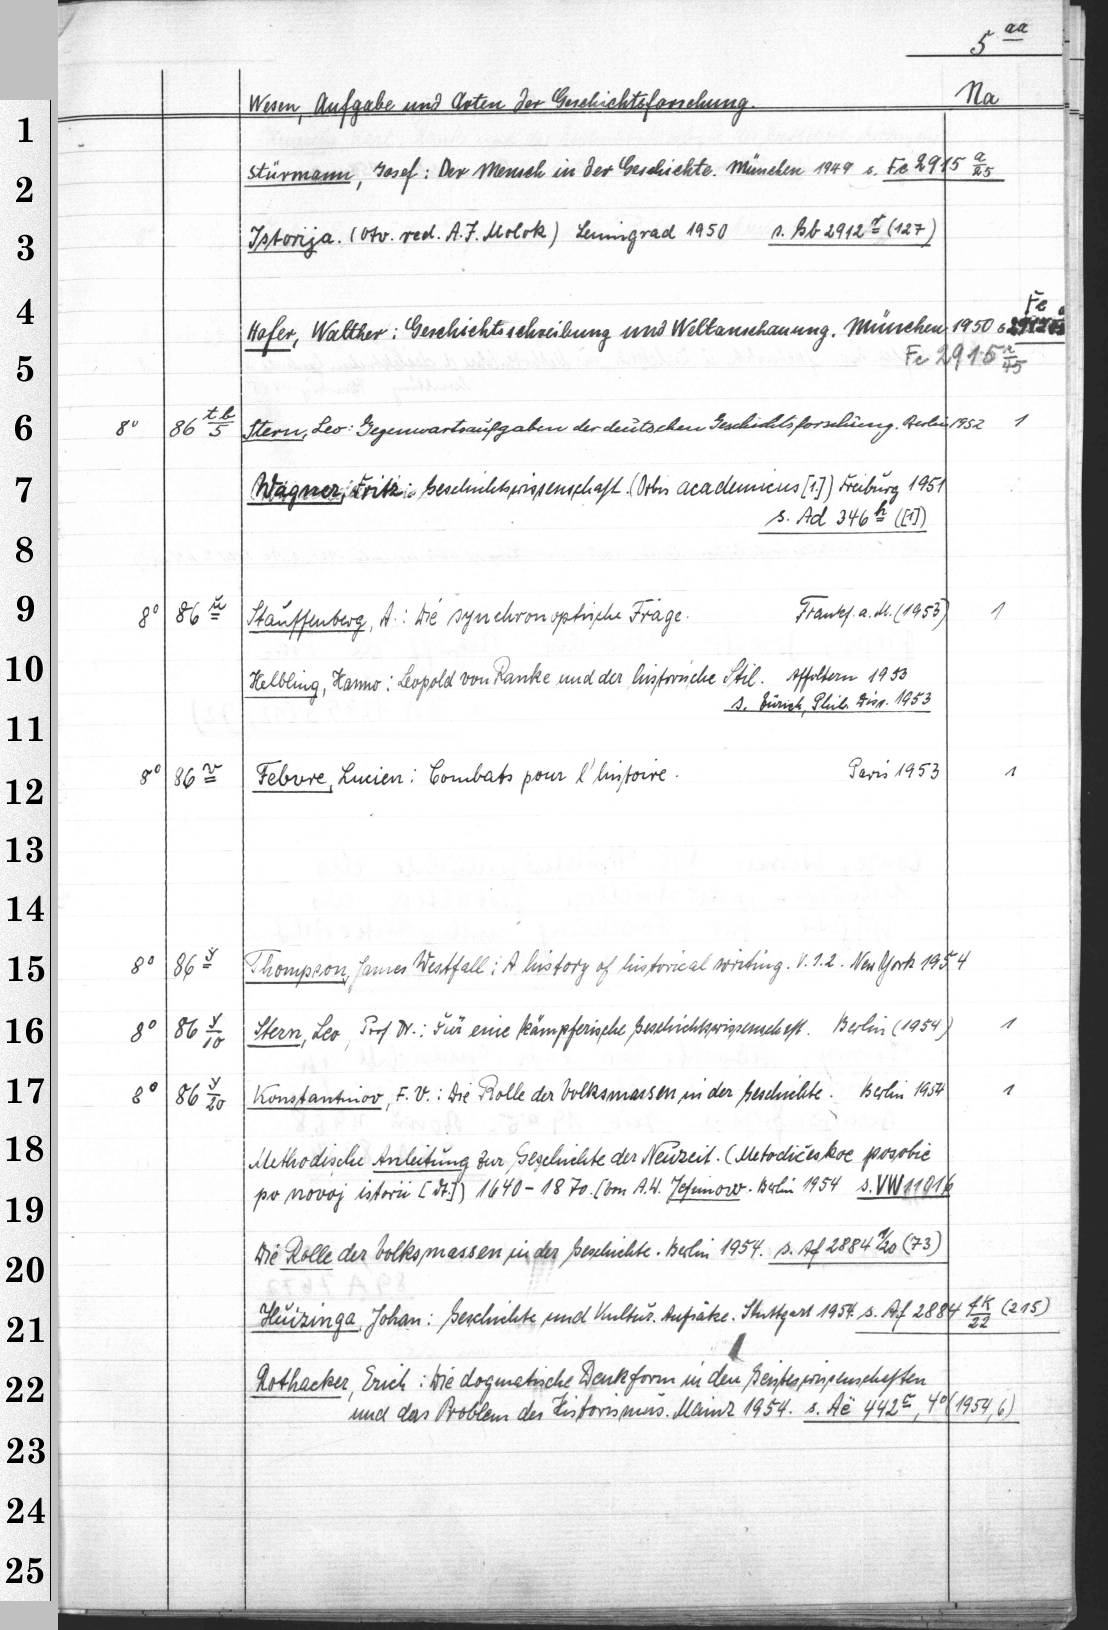 5 aa
Wesen, Aufgabe und Arten der Geschichtsforschung. Na
1
2 Stürmann, Josef: Der Mensch in der Geschichte. München 1949 s. Fc 2915 a/25
3 Istorija. (Otv. red. A.I. Molok) Leningrad 1950 s. Bb 2912 r (127)
4 Hofer, Walther: Geschichtsschreibung und Weltanschauung. München 1950 s. Fc
5 Fc 2915 a/45
6 8° 86 tb/5 Stern, Leo: Gegenwartsaufgaben der deutschen Geschichtsforschung. Berlin 1952 1
7 Wagner, Fritz: Geschichtswissenschaft. (Orbis academicus [1.]) Freiburg 1951
s. Ad 346 h ([1])
8
9 8° 86 u Stauffenberg, A.: Die synchronoptische Frage. Frankf. a. M. (1953) 1
10 Helbling, Hanno: Leopold von Ranke und der historische Stil. Affoltern 1953
s. Zürich, Phil. Diss. 1953
11
12 8° 86 v Febvre, Lucien: Combats pour l'histoire. Paris 1953 1
13
14
15 8° 86 y Thompson, James Westfall: A history of historical writing. V. 1.2. New York 1954
16 8° 86 y/10 Stern, Leo, Prof Dr.: Für eine kämpferische Geschichtswissenschaft. Berlin (1954) 1
17 8° 86 y/20 Konstantinov, F. V.: Die Rolle der Volksmassen in der Geschichte. Berlin 1954 1
18 Methodische Anleitung zur Geschichte der Neuzeit. (Metodičeskoe posobie
19 po novoj istorii [dt.]) 1640-1870. [Von A.W. Jefimow. Berlin 1954 s. VW 11016
20 Die Rolle der Volksmassen in der Geschichte. Berlin 1954. s. Af 2884 (73)
21 Huizinga, Johan: Geschichte und Kultur. Aufsätze. Stuttgart 1954. s. Af 2884 fk/22 (215)
22 Rothacker, Erich: Die dogmatische Denkform in den Geisteswissenschaften
und das Problem des Historismus. Mainz 1954. s. Aë 442 c, 4° (1954,6)
23
24
25